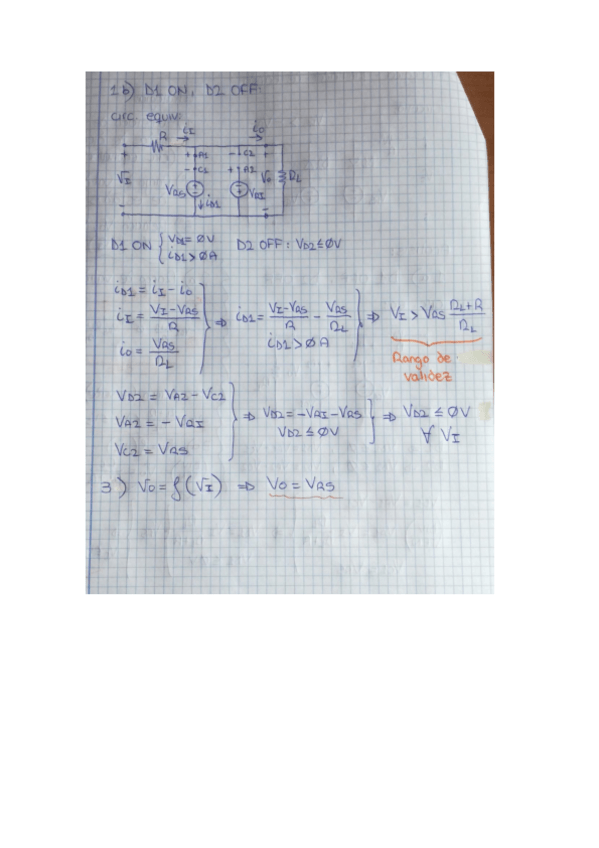 1b) D1 ON, D2 OFF:
circ. equiv:
R iI iO
+ + A1 - C2 +
- C1 + A2
VI VRS iD1 VRI VO RL
- -
D1 ON { VD1 = ØV iD1 > ØA D2 OFF: VD2 ≤ ØV
iD1 = iI - iO
iI = (VI - VRS)/R
iO = VRS/RL
⇒ iD1 = (VI - VRS)/R - VRS/RL
iD1 > ØA
⇒ VI > VRS (RL+R)/RL
Rango de
validez
VD2 = VA2 - VC2
VA2 = - VRI
VC2 = VRS
⇒ VD2 = -VRI - VRS
VD2 ≤ ØV
⇒ VD2 ≤ ØV
∀ VI
3) VO = f(VI) ⇒ VO = VRS